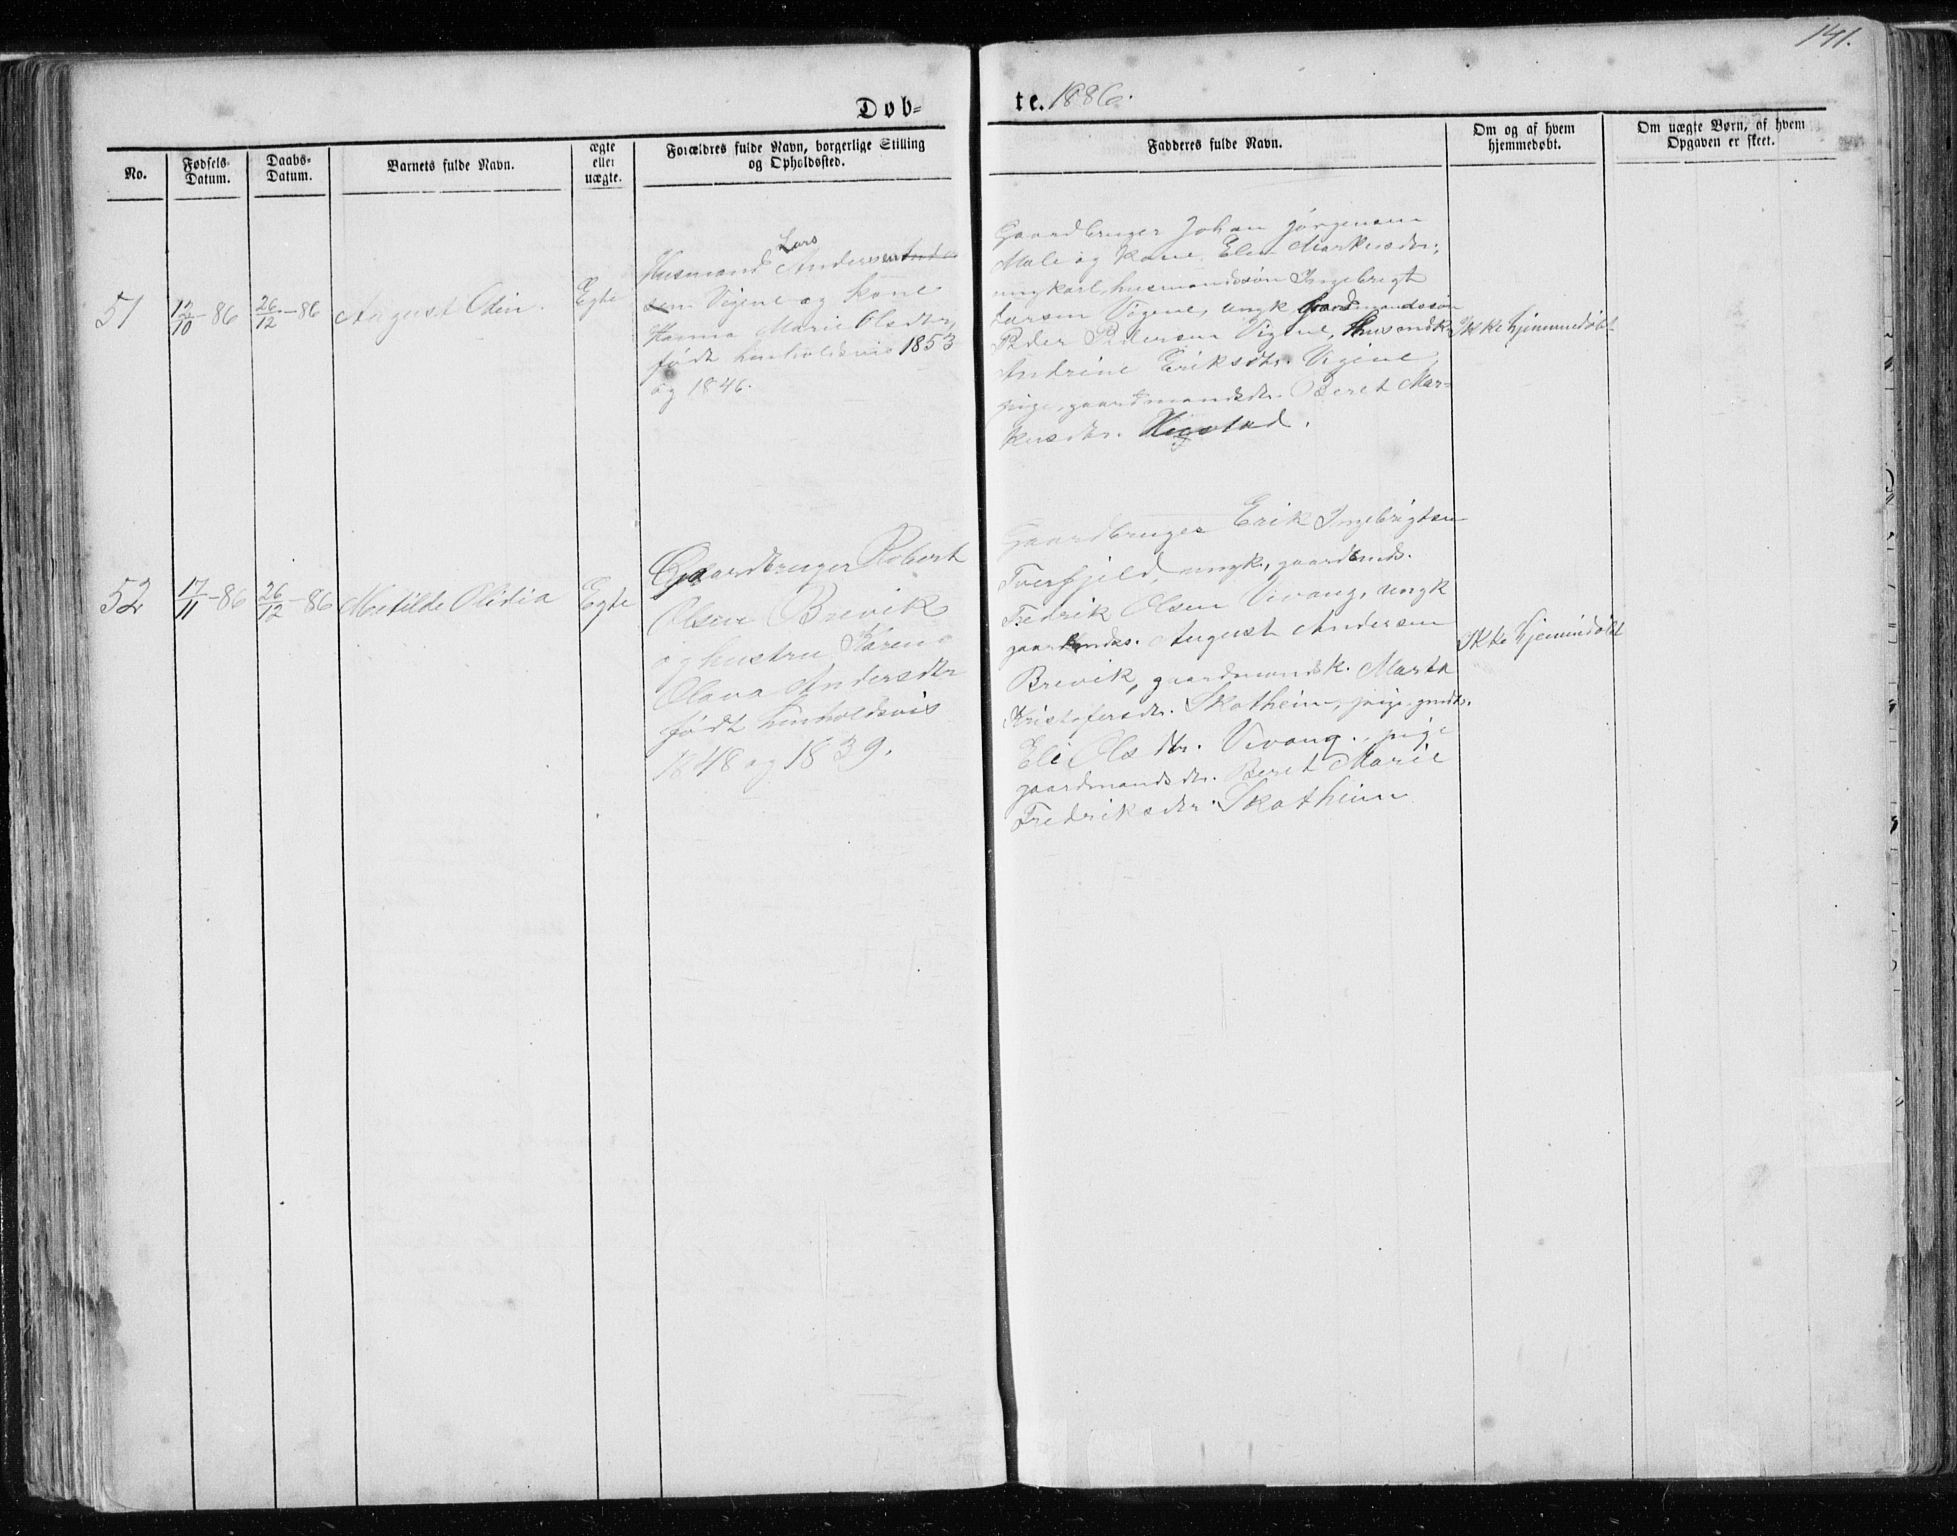 141.
Døb-
te. 1886.
No.
Fødsels-
Datum.
Daabs-
Datum.
Barnets fulde Navn.
ægte
eller
uægte.
Forældres fulde Navn, borgerlige Stilling
og Opholdssted.
Faddernes fulde Navn.
Om og af hvem
hjemmedøbt.
Om uægte Børn, af hvem
Opgaven er skeet.
51
12/10-86
26/12-86
August Odin.
Egte
Lars
Husmand Andersen
Vigene og Kone
Hanna Marie Olsdtr,
født henholdsvis 1853
og 1846.
Gaardbruger Johan Jørgensen
Male og Kone Elen Markusdtr.,
ungkarl, husmandssøn Ingebrigt
Larsen Vigene, ungk. gaardmandssøn
Peder Pedersen Vigene,
Andrine Eriksdtr. Vigene,
pige, gaardmandsdtr. Beret Mar-
kusdtr.
Ikke hjemmedøbt
52
17/11-86
26/12-86
Metilde Olidia
Egte
Gaardbruger Robert
Olsen Brevik
og hustru Karen
Olava Andersdtr
født henholdsvis
1848 og 1839.
Gaardbruger Erik Ingebrigtsen
Tverfjeld, ungk,
Fredrik Olsen Vevang, ungk
August Andersen
Brevik, gaardmandsk. Marta
Kristofersdtr. Skotheim, pige
Eli Olsdtr. Vevang, pige
gaardmandsdtr. Beret Marie
Fredriksdtr. Skotheim
Ikke hjemmedøbt